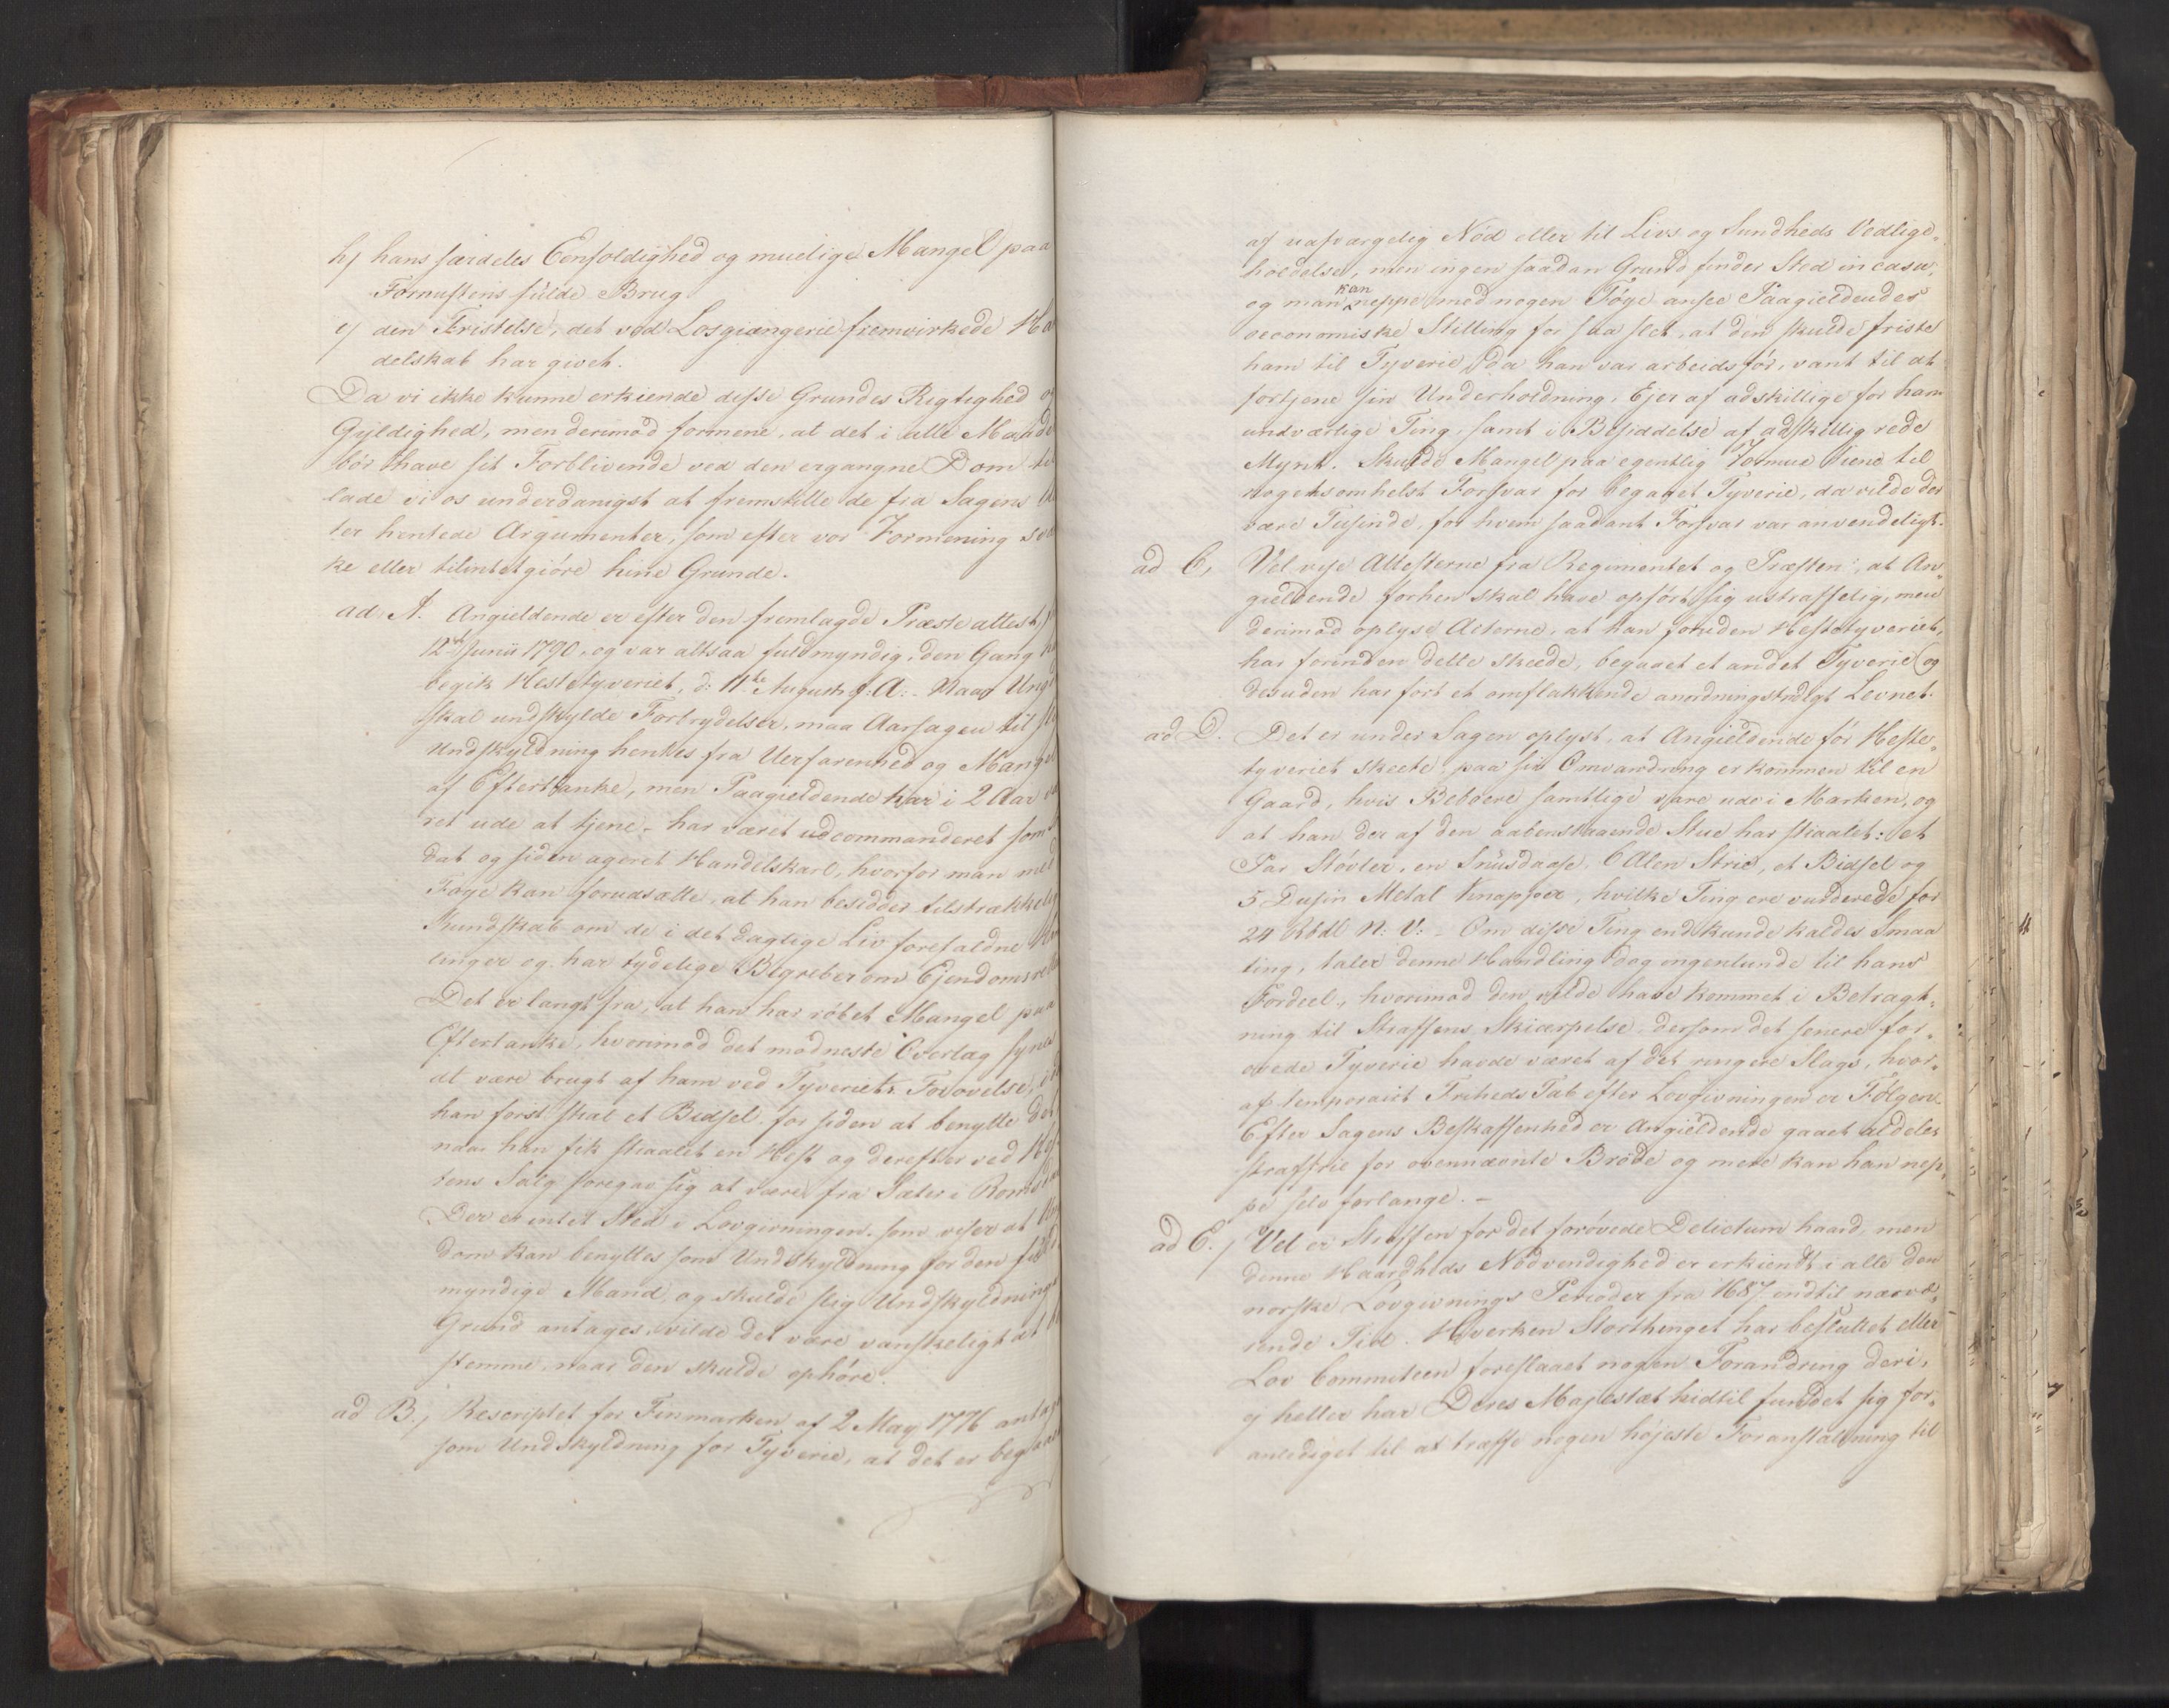 h, hans særdeles Eenfoldighed og muelige Mangel paa
Fornuftens fulde Brug
i, den Fristelse, det ved Losgiængerie fremvirkede
delskab har givet.
Da vi ikke kunne erkiende disse Grundes Rigtighed og
Gyldighed, men derimod formene, at det i alle Maader
bør have sit Forblivende ved den ergangne Dom
lade vi os underdanigst at fremstille de fra Sagens
ter hentede Argumenter, som efter vor Formening
ke eller tilintetgióre hine Grunde.
ad A. Angieldende er efter den fremlagde Præste attest,
12te Junii 1790, og var altsaa fuldmyndig, den Gang han
begik Hestetyveriet, d: 11te August f: A: - Naar Ung
skal undskylde Forbrydelser, maa Aarsagen til
Undskyldning hentes fra Uerfarenhed og Mangel
af Eftertanke, men Paagieldende har i 2 Aar
ret ude at tjene - har været udcommanderet som
dat og siden ageret Handelskarl, hvorfor man med
Føye kan forudsætte, at han besidder tilstrækkelig
Kundskab om de i det daglige Liv forefaldne
linger og har tydelige Begreber om Ejendomsrett
Det er langt fra, at han har róbet Mangel paa
Eftertanke, hvorimod det modneste Overlæg synes
at være brugt af ham ved Tyveriets Forøvelse,
han først stial et Bidsel for siden at benytte det
naar han fik stiaalet en Hest og derefter ved
tens Salg foregav sig at være fra Sæter i Roms
Der er intet Sted i Lovgivningen, som viser at
dom kan benyttes som Undskyldning for den fuld
myndige Mand, og skulde slig Undskyldnings
Grund antages, vilde det være vanskeligt at be
stemme, naar den skulde ophóre.
ad B., Rescriptet for Finmarken af 2 May 1776 antager
som Undskyldning for Tyverie, at det er begaaet
af uafværgelig Nód eller til Livs og Sundheds Vedlige-
holdelse, men ingen saadan Grund finder Sted in casu,
og man kan neppe med nogen Fóye ansee Paagieldendes
oeconomiske Stilling for saa slet, at den skulde friste
ham til Tyverie, da han var arbeidsfór, vant til at
fortjene sin Underholdning, Ejer af adskillige for ham
undværlige Ting, samt i Besiddelse af adskillig rede
Mynt. Skulde Mangel paa egentlig Formue tiene til
nogetsomhelst Forsvar for begaaet Tyverie, da vilde der
være Tusinde, for hvem saadant Forsvar var anvendeligt.
ad C, Vel vise Attesterne fra Regimentet og Præsten, at An-
gieldende forhen skal have opfórt sig ustraffelig, men
derimod oplyse Acterne, at han foruden Hestetyveriet,
har forinden dette skeede, begaaet et andet Tyverie og
desuden har fórt et omflakkende anordningstridigt Levnet.
ad D. Det er under Sagen oplyst, at Angieldende fór Heste-
tyveriet skeete, paa sin Omvandring er kommen til en
Gaard, hvis Beboere samtlige vare ude i Marken, og
at han der af den aabenstaaende Stue har stiaalet: et
Par Stóvler, en Snusdaase, 6 Alen Strie, et Bidsel og
5 Dusin Metal Knapper, hvilke Ting ere vurderede for
24 Rbdl N: V: - Om disse Ting end kunde kaldes Smaa
ting, taler denne Handling dog ingenlunde til hans
Fordeel, hvorimod den vilde have kommet i Betragt-
ning til Straffens Skiærpelse, dersom det senere for-
óvede Tyverie havde været af det ringere Slags, hvor-
af temporairt Friheds Tab efter Lovgivningen er Fólgen.
Efter Sagens Beskaffenhed er Angieldende gaaet aldeles
straffrie for ovennævnte Bróde og mere kan han nep-
pe selv forlange. -
ad E., Vel er Straffen for det foróvede Delictum haard, men
denne Haardheds Nódvendighed er erkiendt i alle den
norske Lovgivnings Perioder fra 1687 indtil nærvæ-
rende Tid. Hverken Storthinget har besluttet eller
Lov Committeen foreslaaet nogen Forandring deri,
ej heller har Deres Majestæt hidtil fundet sig for-
anlediget til at træffe nogen hójeste Foranstaltning til